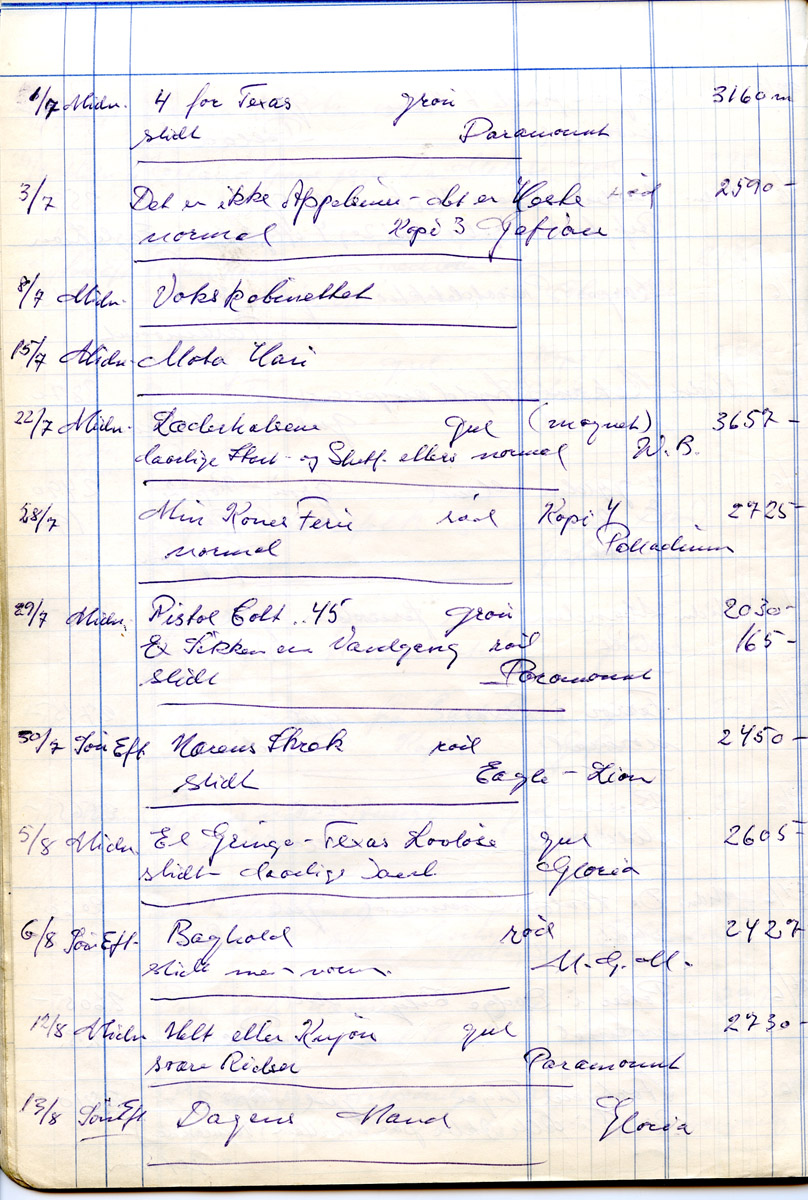 1/7 Midn. 4 for Texas grøn 3160 m
slidt Paramount
3/7 Det er ikke Appelsiner - det er Heste rød 2590 -
normal Kopi 3 Gefion
8/7 Midn. Vokskabinettet
15/7 Midn. Mata Hari
22/7 Midn. Läderhalsene gul (magnet) 3657 -
daarlige Start- og Slut- ellers normal W.B.
28/7 Min Kones Ferie rød Kopi 4 2725 -
normal Palladium
29/7 Midn. Pistol Colt .45 grøn 2030 -
Ex Sikken en Vandgang rød 165 -
slidt Paramount
30/7 Søn Eft Havens Skræk rød 2450 -
slidt Eagle - Lion
5/8 Midn. El Gringo - Texas Lovløse gul 2605 -
slidt - daarlige Gloria
6/8 Søn Eft. Baghold rød 2427 -
slidt M.G.M.
12/8 Midn Helt eller Kujon gul 2730 -
svære Ridser Paramount
13/8 Søn Eft Dagens Mand Gloria